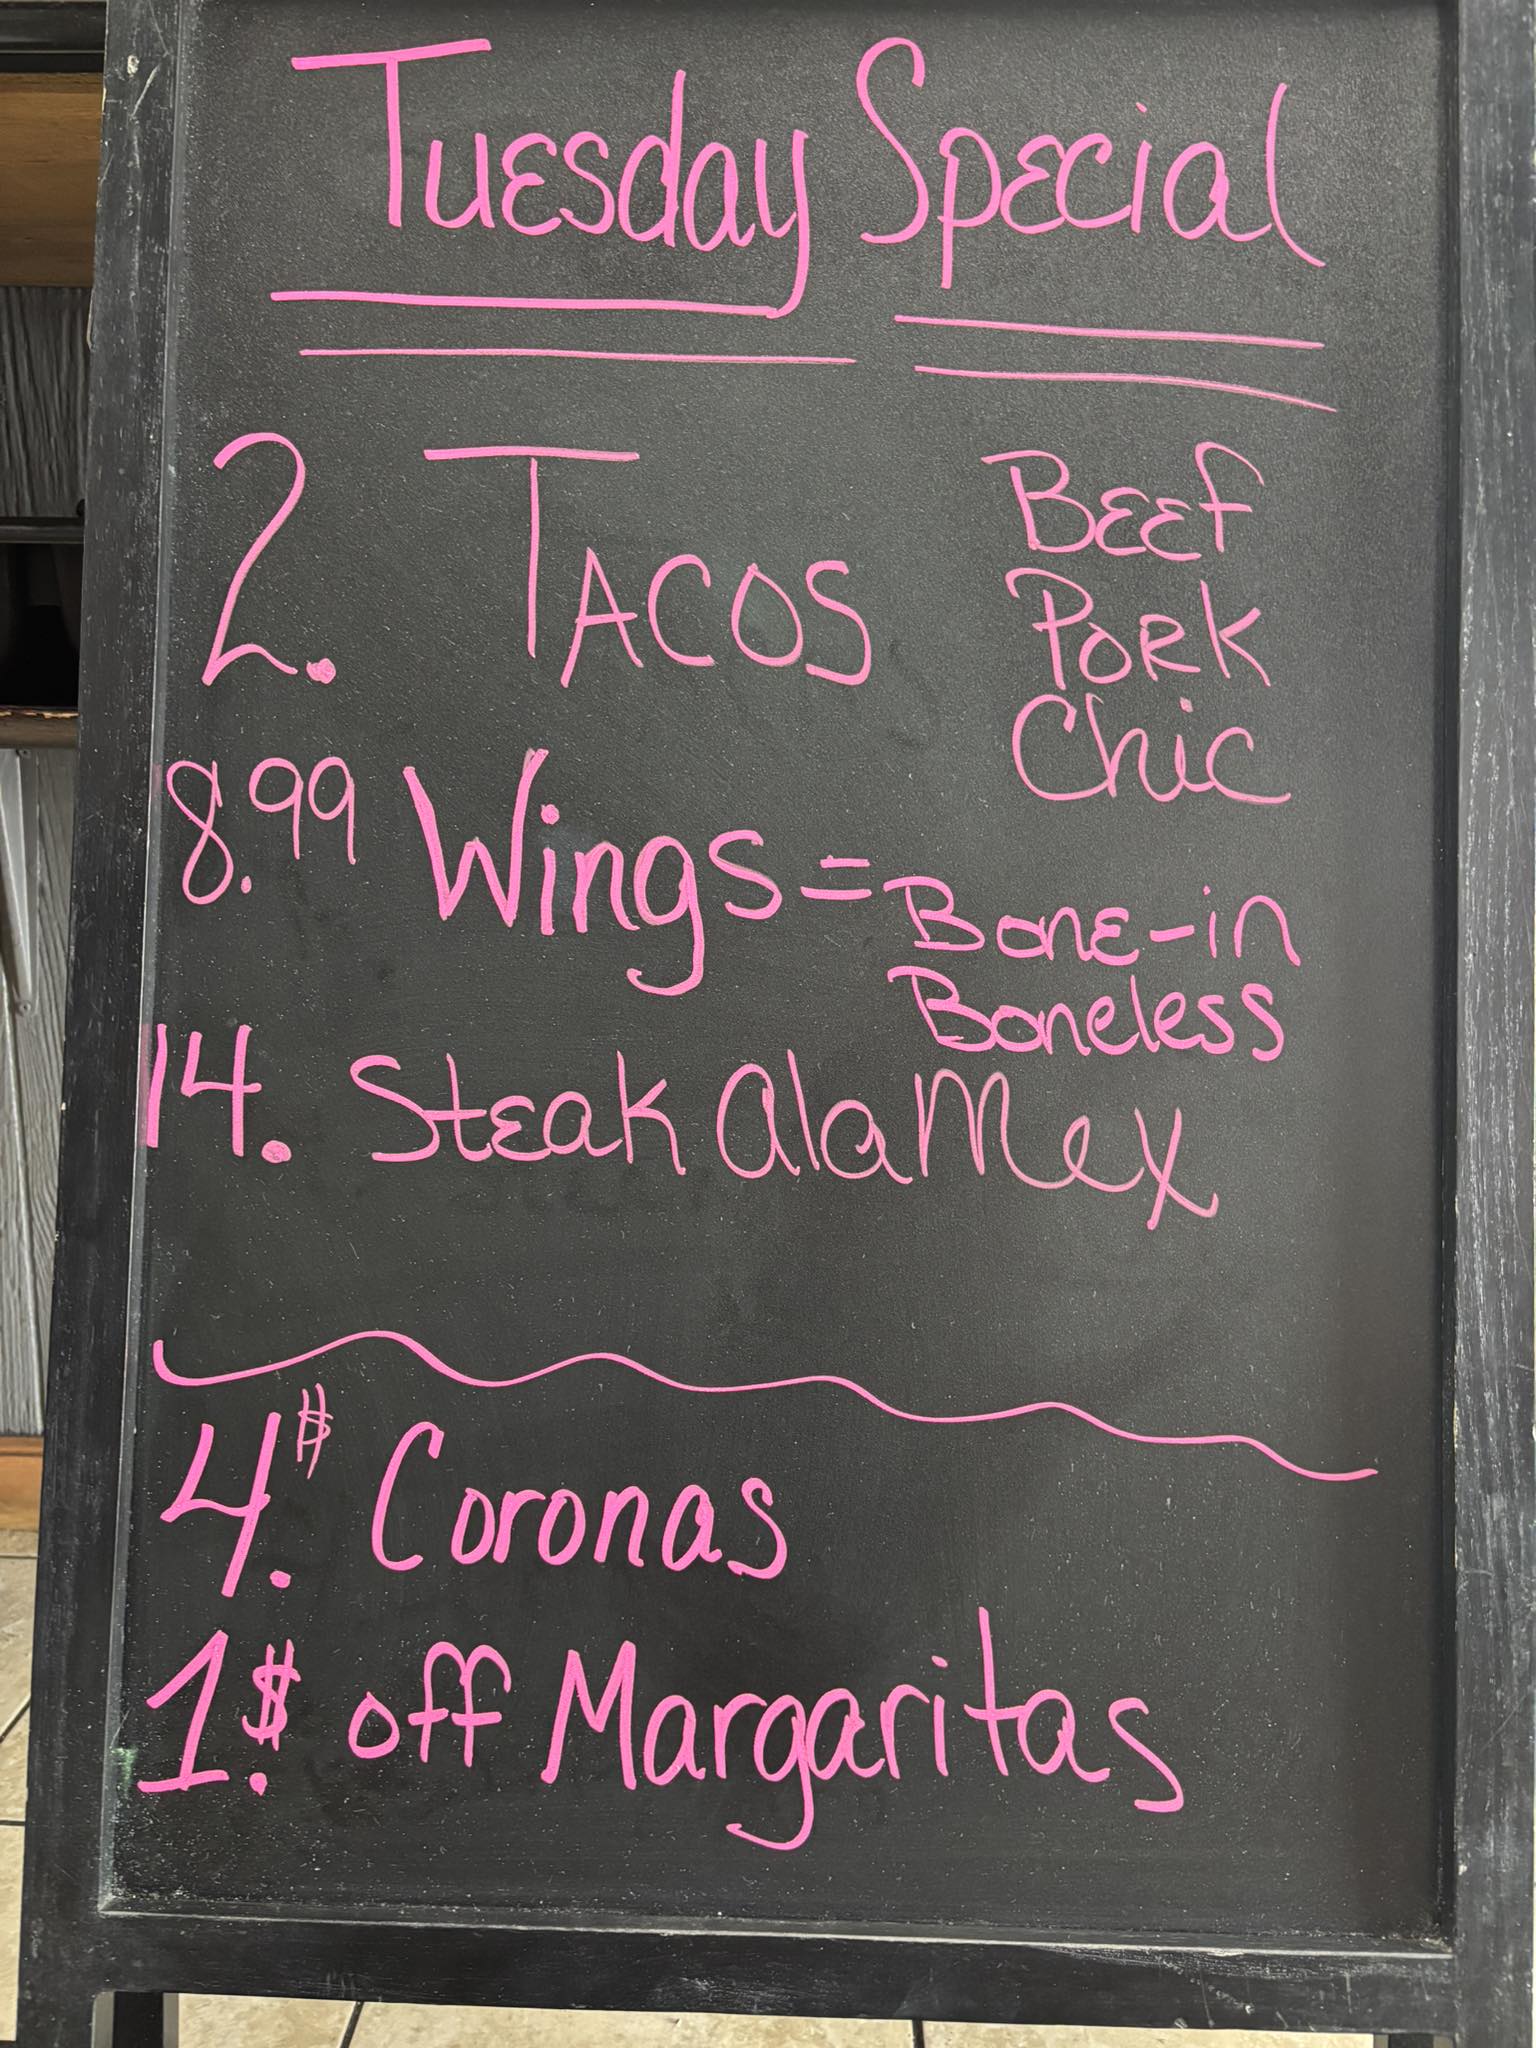 Tuesday Special
2. TACOS
Beef
Pork
Chic
8.99 Wings = Bone-in
Boneless
14. Steak alamex
4.$ Coronas
1.$ off Margaritas